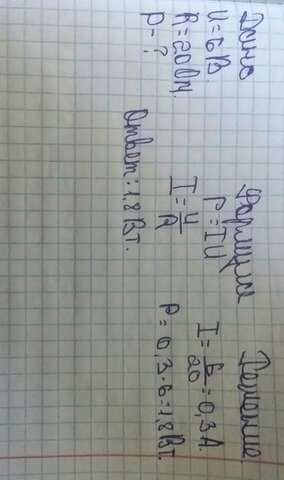 Дано
U=6В.
R=20Ом.
P-?
Формула
P=IU
I=U/R
Ответ: 1,8Вт.
Решение
I=6/20=0,3А.
P=0,3·6=1,8Вт.